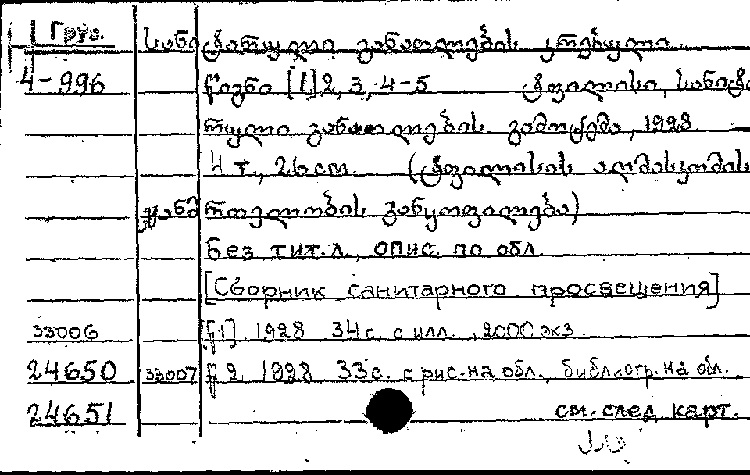 Груз. სანიტარული განათლების კრებული
4-996 წიგნი [1] 2, 3, 4-5 ტფილისი, სანიტა
რული განათლების გამოცემა, 1928
4 т., 26 см. (ტფილისის აღმასკომის
ჯანმრთელობის განყოფილება)
Без тит. л., опис. по обл.
[Сборник санитарного просвещения]
33006 [1] 1928 34 с. с илл., 2000 экз.
24650 33007 2. 1928 33 с. с рис. на обл., библиогр. на обл.
24651 см. след карт.